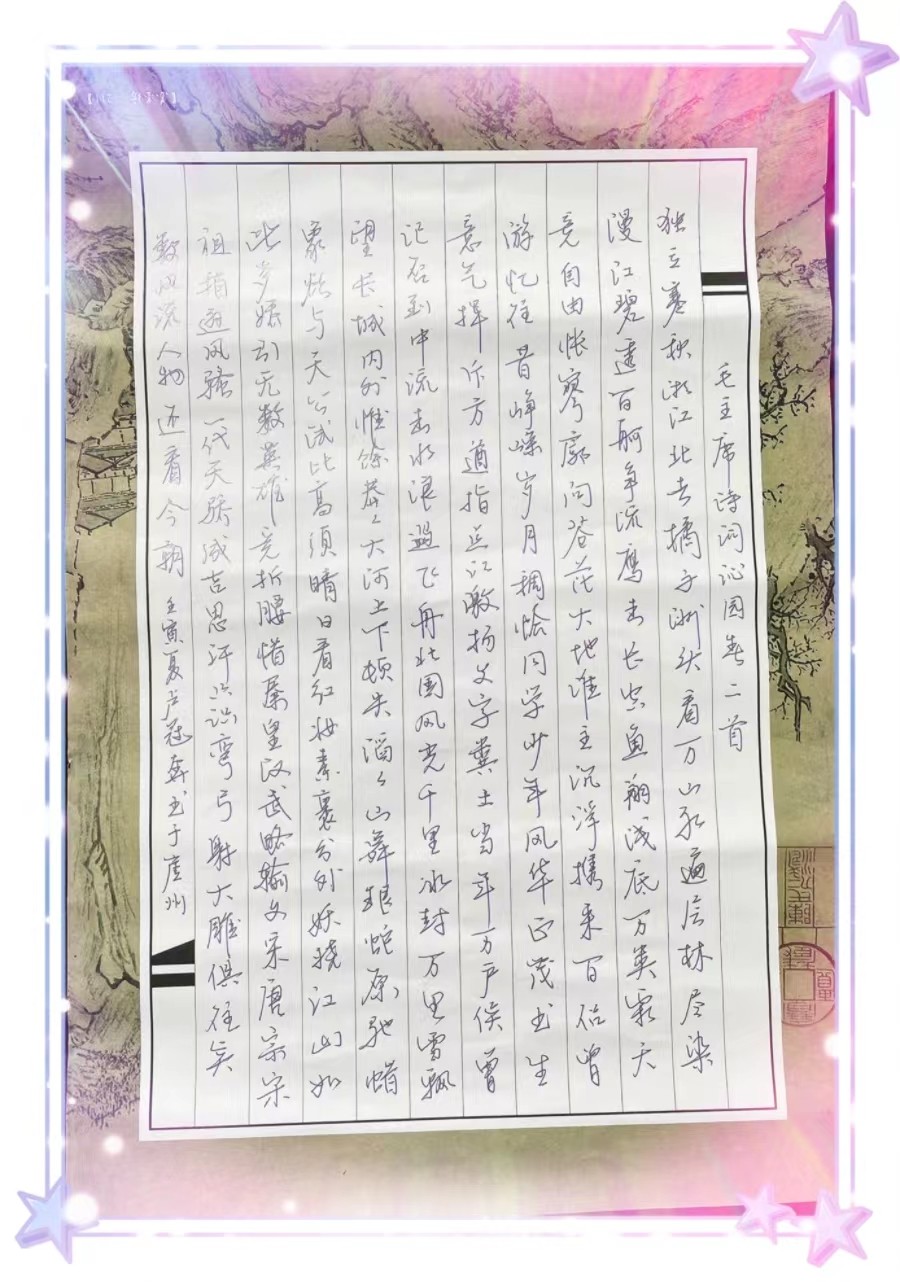 毛主席诗词沁园春二首
独立寒秋湘江北去橘子洲头看万山红遍层林尽染
漫江碧透百舸争流鹰击长空鱼翔浅底万类霜天
竞自由怅寥廓问苍茫大地谁主沉浮携来百侣曾
游忆往昔峥嵘岁月稠恰同学少年风华正茂书生
意气挥斥方遒指点江激扬文字粪土当年万户侯曾
记否到中流击水浪遏飞舟北国风光千里冰封万里雪飘
望长城内外惟馀莽々大河上下顿失滔々山舞银蛇原驰蜡
象欲与天公试比高须晴日看红妆素裹分外妖娆江山如
此多娇引无数英雄竞折腰惜秦皇汉武略输文采唐宗宋
祖稍逊风骚一代天骄成吉思汗只识弯弓射大雕俱往矣
数风流人物还看今朝 壬寅夏卢冠奔书于广州